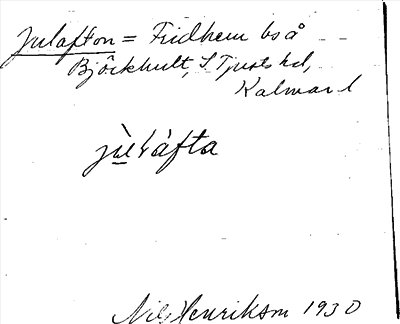 Julafton = Fridhem bs å
Björkhult, S Tjusts hd,
Kalmar l
jùlàfta
Nils Henrikson 1930